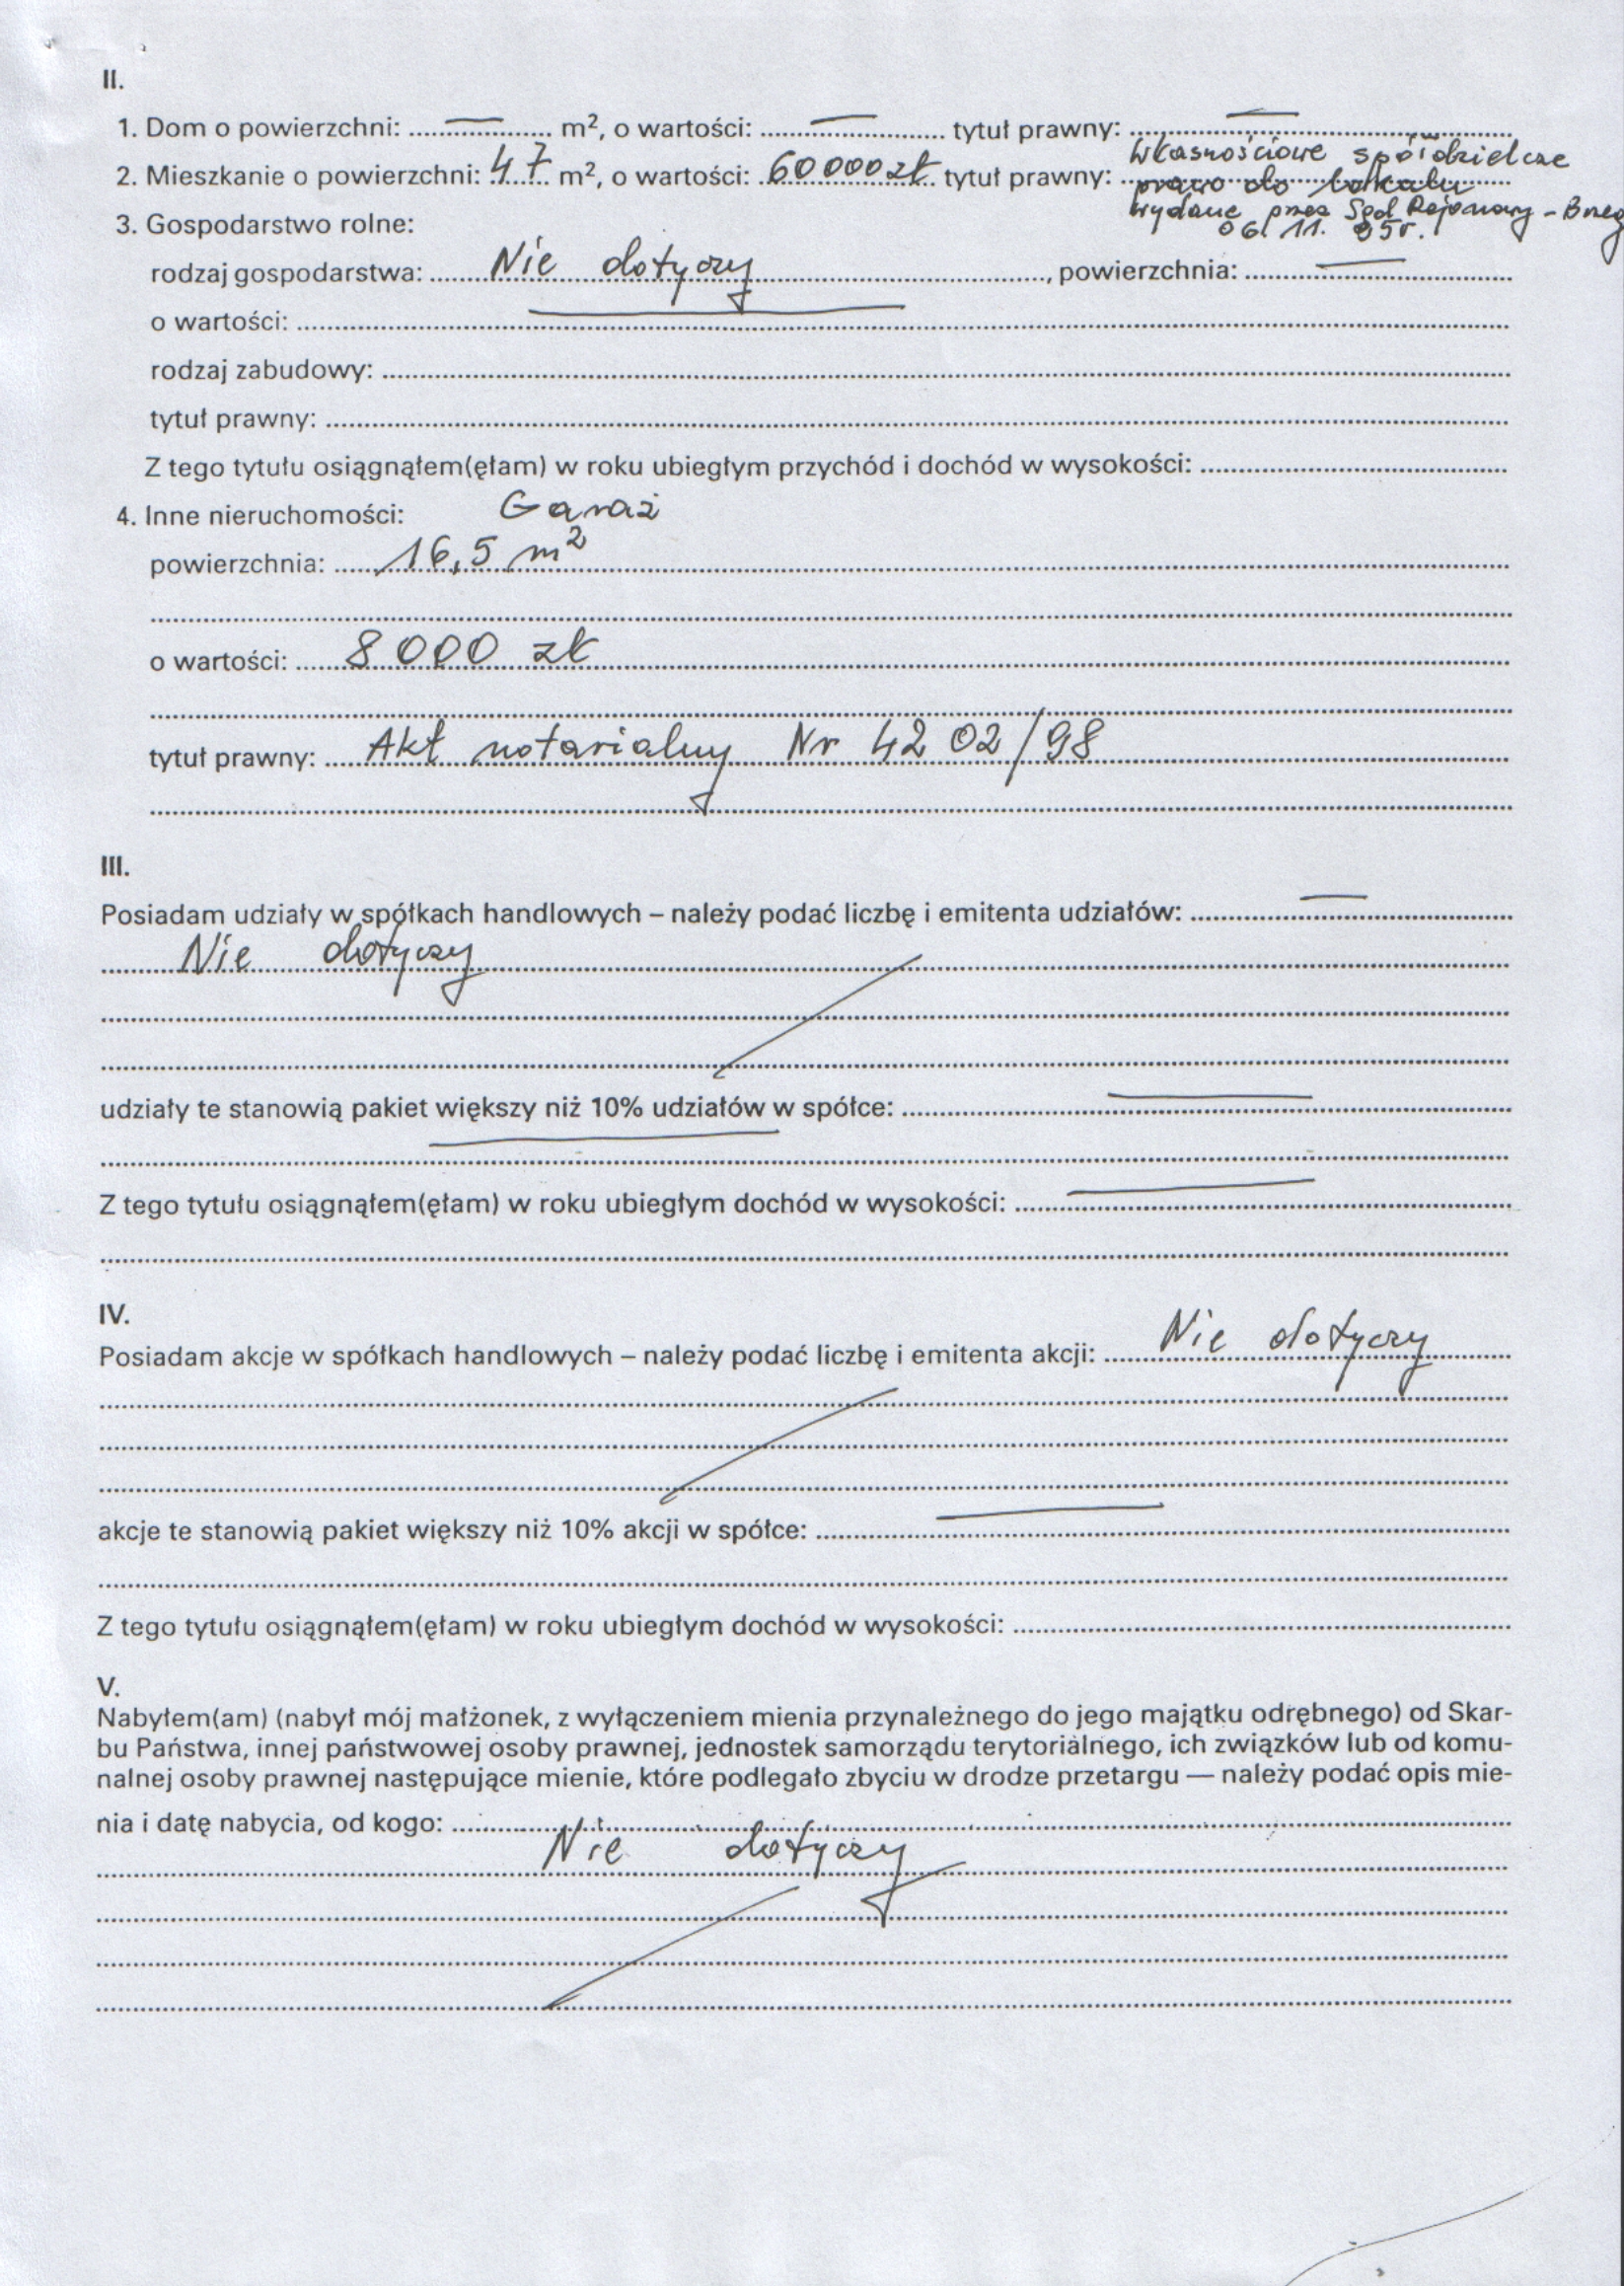 II.
1. Dom o powierzchni: .......... m², o wartości: .......... tytuł prawny: ..........
2. Mieszkanie o powierzchni: 47 m², o wartości: 60 000 zł tytuł prawny: Własnościowe spółdzielcze
prawo do lokalu
wydane przez Sąd Rejonowy - Brzeg
06. 11. 95r.
3. Gospodarstwo rolne:
rodzaj gospodarstwa: Nie dotyczy, powierzchnia: ..........
o wartości: ..........
rodzaj zabudowy: ..........
tytuł prawny: ..........
Z tego tytułu osiągnąłem(ęłam) w roku ubiegłym przychód i dochód w wysokości: ..........
4. Inne nieruchomości: Garaż
powierzchnia: 16,5 m²
o wartości: 8 000 zł
tytuł prawny: Akt notarialny Nr 4202/98
III.
Posiadam udziały w spółkach handlowych – należy podać liczbę i emitenta udziałów: ..........
Nie dotyczy
udziały te stanowią pakiet większy niż 10% udziałów w spółce: ..........
Z tego tytułu osiągnąłem(ęłam) w roku ubiegłym dochód w wysokości: ..........
IV.
Posiadam akcje w spółkach handlowych – należy podać liczbę i emitenta akcji: Nie dotyczy
akcje te stanowią pakiet większy niż 10% akcji w spółce: ..........
Z tego tytułu osiągnąłem(ęłam) w roku ubiegłym dochód w wysokości: ..........
V.
Nabyłem(am) (nabył mój małżonek, z wyłączeniem mienia przynależnego do jego majątku odrębnego) od Skar-
bu Państwa, innej państwowej osoby prawnej, jednostek samorządu terytorialnego, ich związków lub od komu-
nalnej osoby prawnej następujące mienie, które podlegało zbyciu w drodze przetargu — należy podać opis mie-
nia i datę nabycia, od kogo: ..........
Nie dotyczy